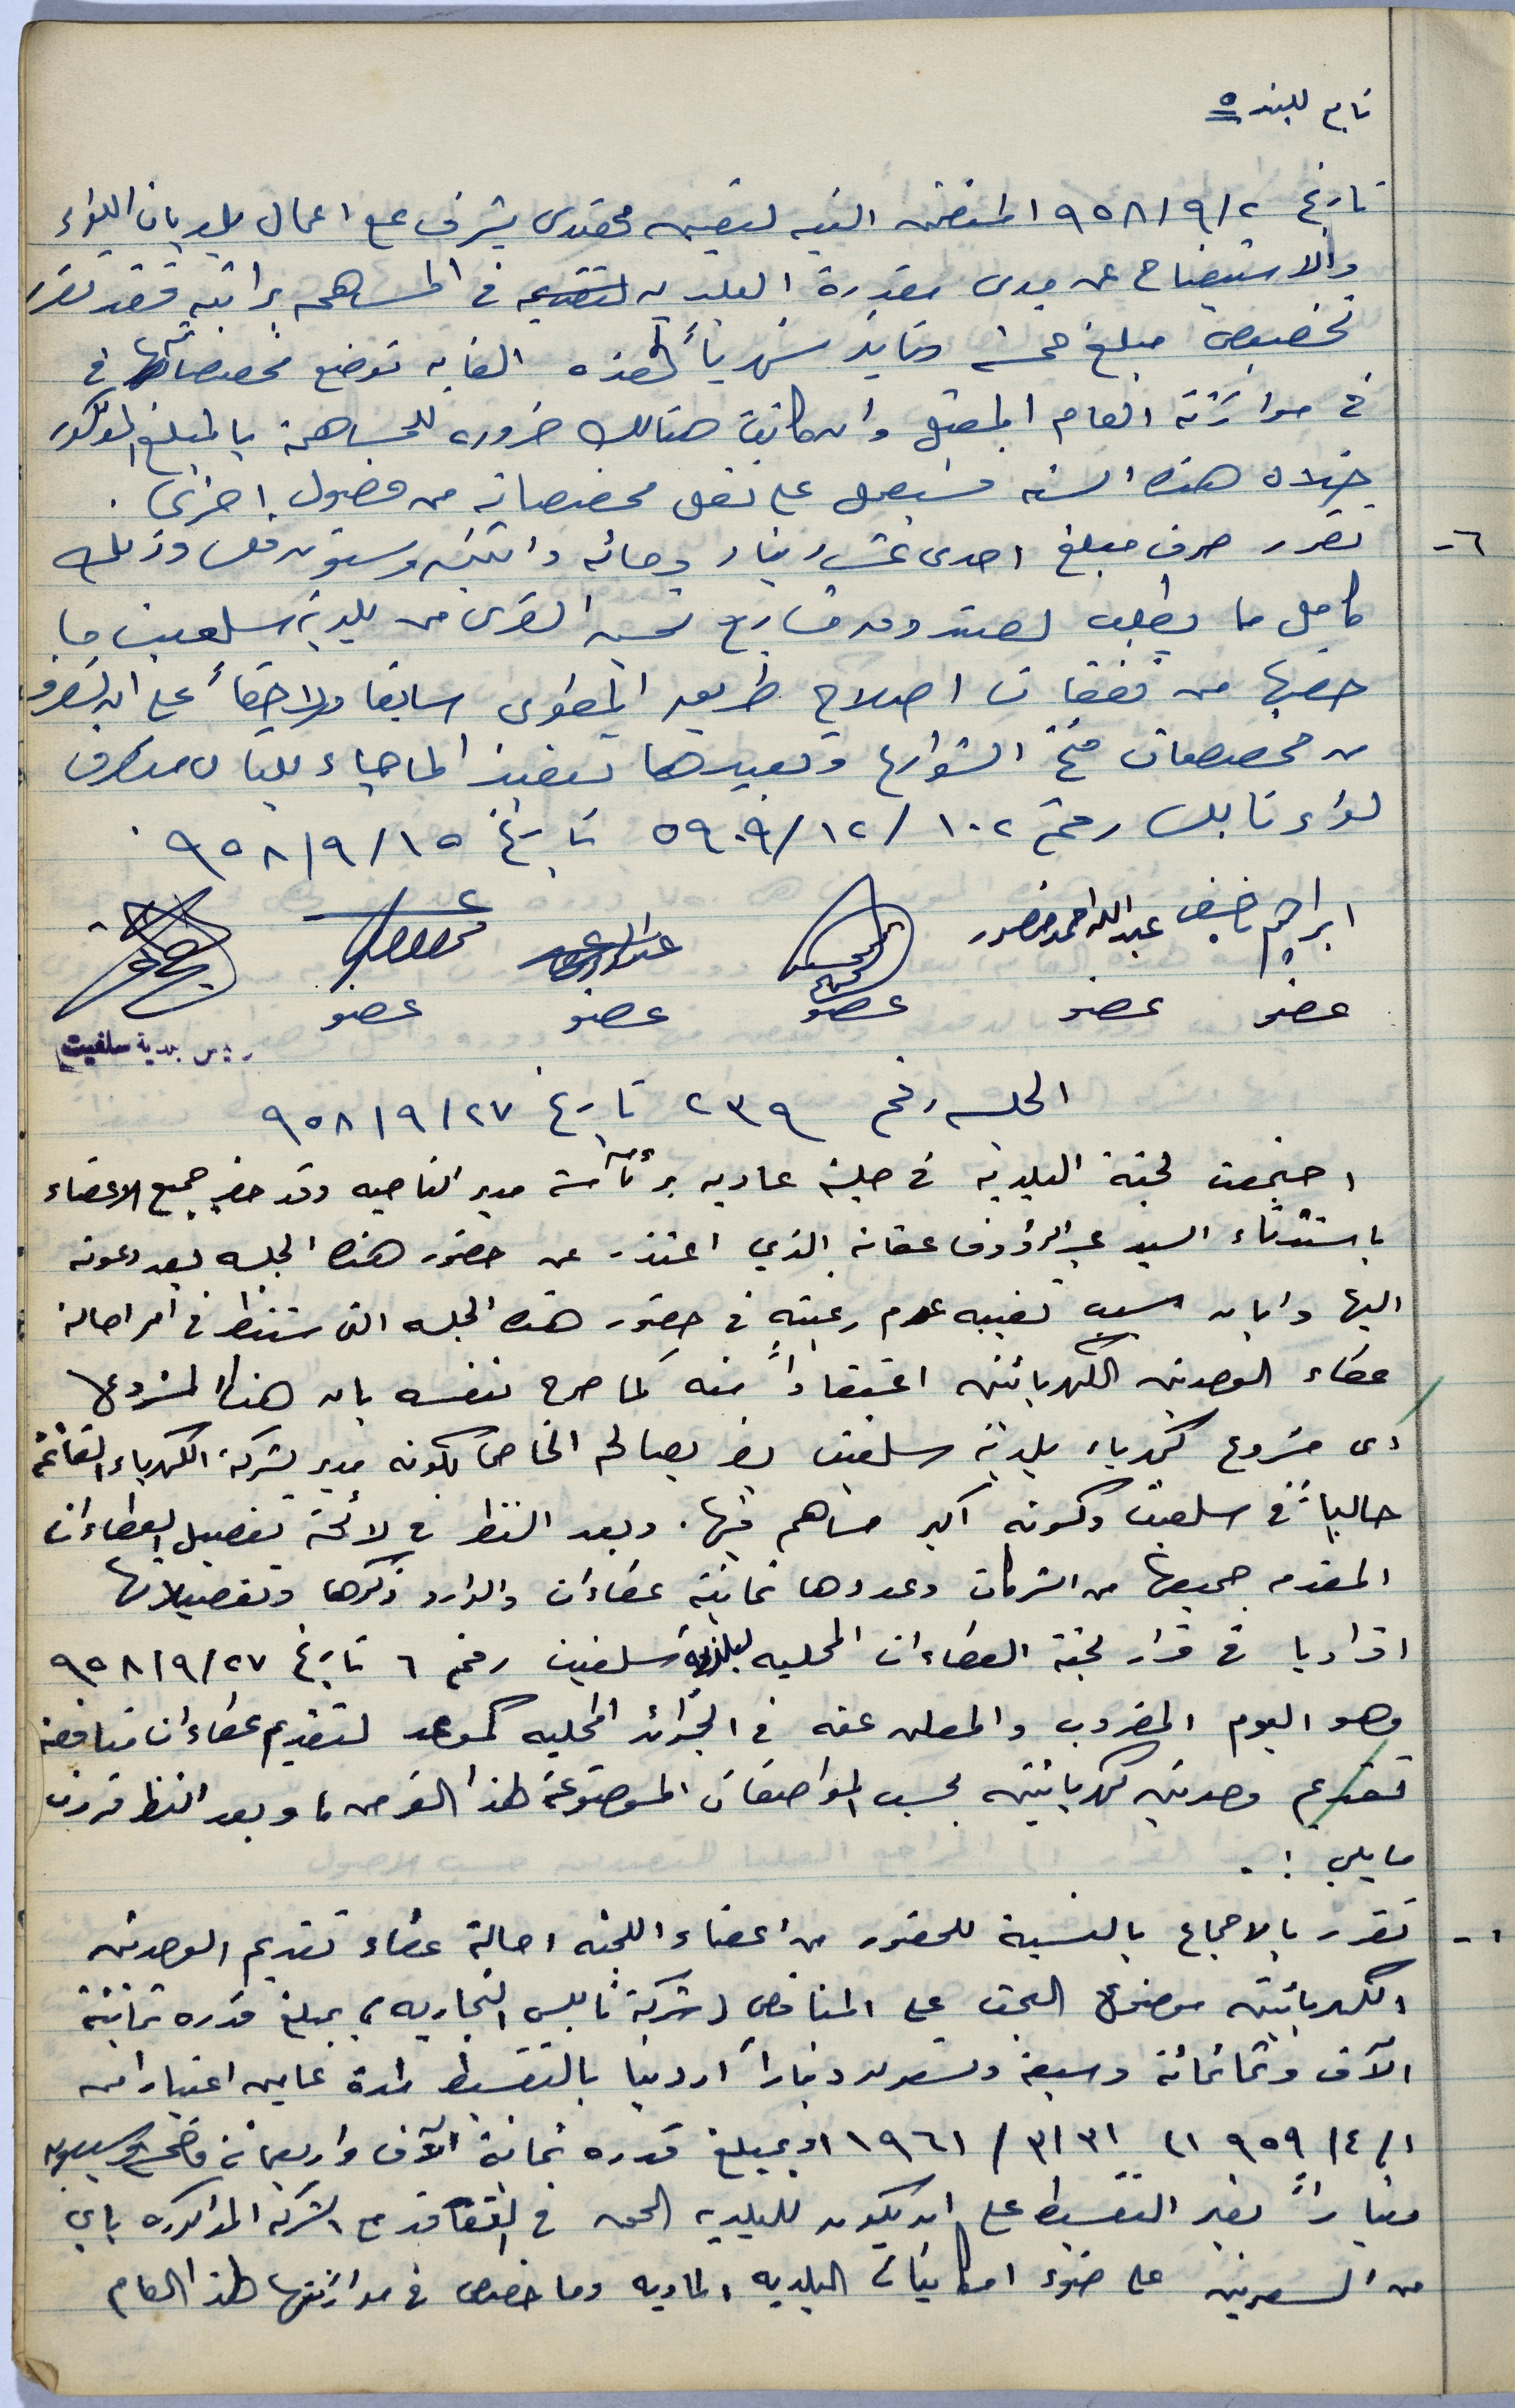 تابع للبند ٥
تاريخ ٩٥٨/٩/٢ المتضمن النيه لتعيين مهندس يشرف على اعمال بلديات اللواء
والاستيضاح عن مدى مقدرة البلديه في المساهمه براتبه فقد تقرر
تخصيص مبلغ خمسة دنانير شهرياً لهذه الغايه توضع مخصصاتها في
في موازنة العام المقبل وان كانت هنالك ضروره للمساهمة بالمبلغ المذكور
خلال هذه السنه فسيعمل على نقل مخصصاته من فصول اخرى .
٦- تقرر صرف مبلغ احدى عشر دينار ومائه واثنين وستون فلس وذلك
كامل ما يطلب لصندوق مشاريع تحسين القرى من بلدية سلفيت ما
خصها من نفقات اصلاح طريق المطوى سابقا ولاحقاً على ان تصرف
من مخصصات فتح الشوارع وتعبيدها تنفيذ لما جاء بكتاب متصرف
لواء نابلس رقم ١٠٢/١٢/٥٩٠٩ تاريخ ٩٥٨/٩/١٥ .
ابراهيم عبدالله احمد منصور
عضو عضو عضو عضو عضو
رئيس بلدية سلفيت
الجلسه رقم ٢٣٩ تاريخ ٩٥٨/٩/٢٧
اجتمعت لجنة البلديه في جلسة عاديه برئاسة مدير الناحيه وقد حضر جميع الاعضاء
باستثناء السيد عبد الرؤوف عفانه الذي اعتذر عن حضور هذه الجلسه بعد دعوته
اليها وابان سبب تغيبه عدم رغبته في حضور هذه الجلسه التي ستنظر في امر احالة
عطاء الوحدتين الكهربائيتين اعتقاداً منه كما صرح بنفسه بان هذا المشروع
اى مشروع كهرباء بلدية سلفيت يضر بصالحه الخاص لكونه مدير لشركة الكهرباء القائمة
حالياً في سلفيت وكونه اكبر مساهم فيها . وبعد النظر في لائحة تفصيل العطاءات
المقدمه جميعها من الشركات وعددها ثمانية عطاءات والوارد ذكرها وتفصيلاتها
افراديا في قرار لجنة العطاءات المحليه لبلدية سلفيت رقم ٦ تاريخ ٩٥٨/٩/٢٧
وهو اليوم المضروب والمعلن عنه في الجرائد المحليه كموعد لتقديم عطاءات مناقصة
تقديم وحدتين كهربائيتين بحسب المواصفات الموضوعة لهذا الغرض ، وبعد النظر قررت
ما يلي :-
١- تقرر بالاجماع بالنسبة للحضور من اعضاء اللجنه احالة عطاء تقديم الوحدتين
الكهربائيتين موضوع البحث على المناقص (شركة نابلس التجاريه) بمبلغ قدره ثمانية
الآف وثمانمائة وسبعة وتسعون ديناراً اردنيا بالتقسيط لمدة عامين اعتبارا من
٩٥٩/٤/١ الى ١٩٦١/٣/٣١ او بمبلغ قدره ثمانية الآف واربعمائة وخمسه وسبعون
ديناراً بغير التقسيط على ان يكون للبلديه الحق في التعاقد مع الشركه المذكوره باي
من السعرين على ضوء امكانيات البلديه الماديه وما خصص في موازنتها لهذا العام